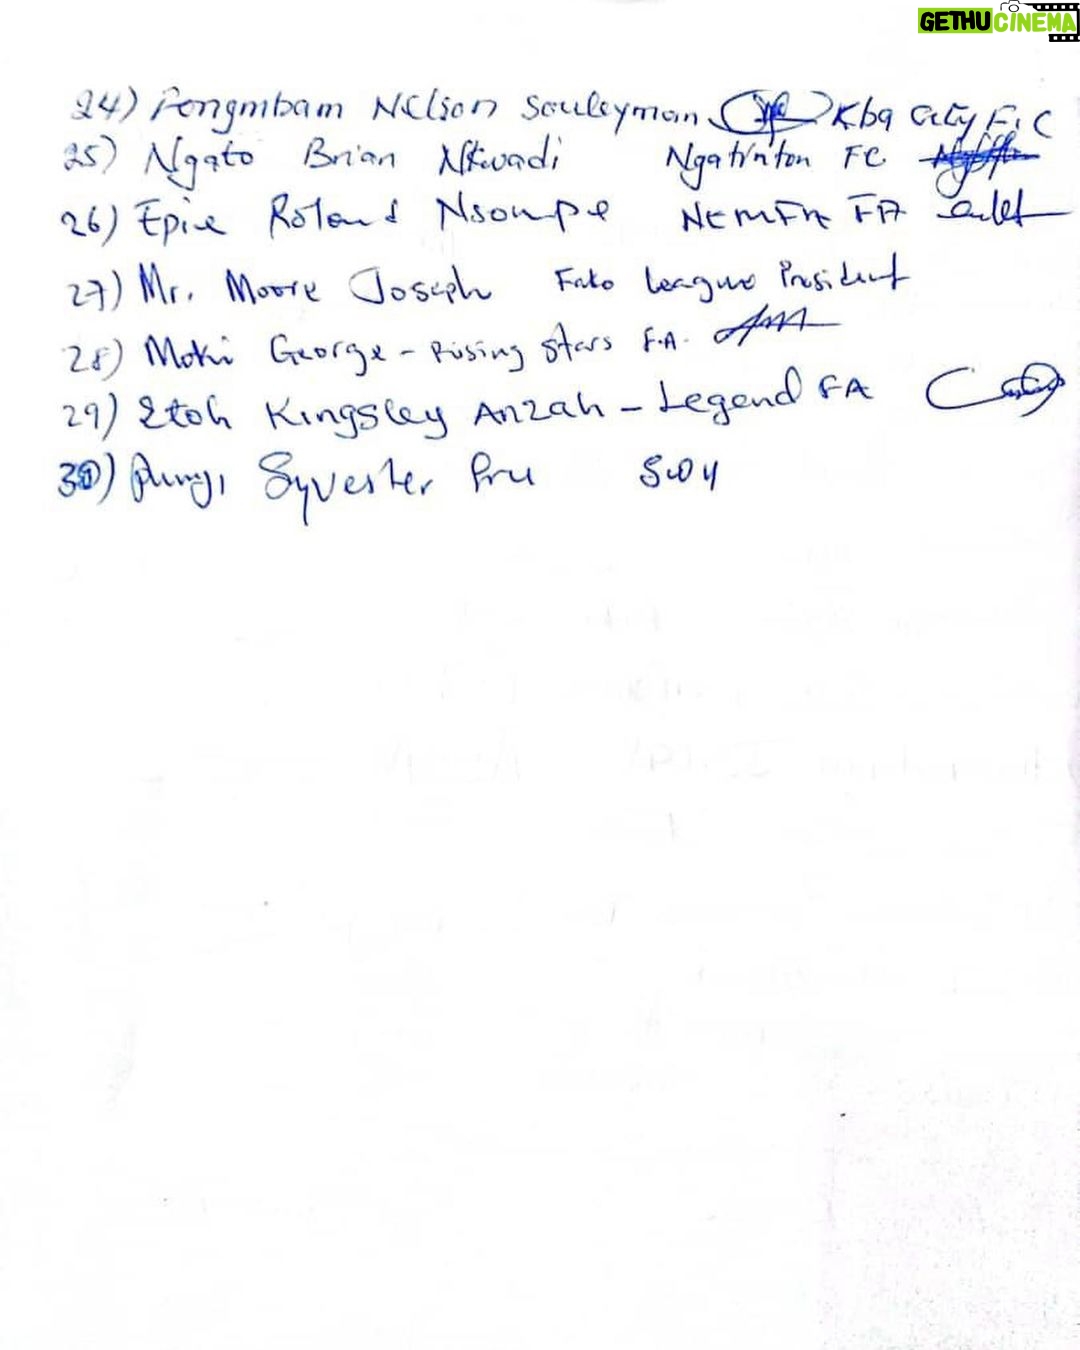 GETHUCINEMA
24) Fongmbam Nelson Souleyman Kba City F.C
25) Ngato Brian Nkwadi Ngatinton FC
26) Epie Roland Nsoupe NEMFA FA
27) Mr. Moore Joseph Fako League President
28) Moki George - Rising Stars F.A.
29) Etoh Kingsley Anzah - Legend FA
30) Syvester Fru SWOY